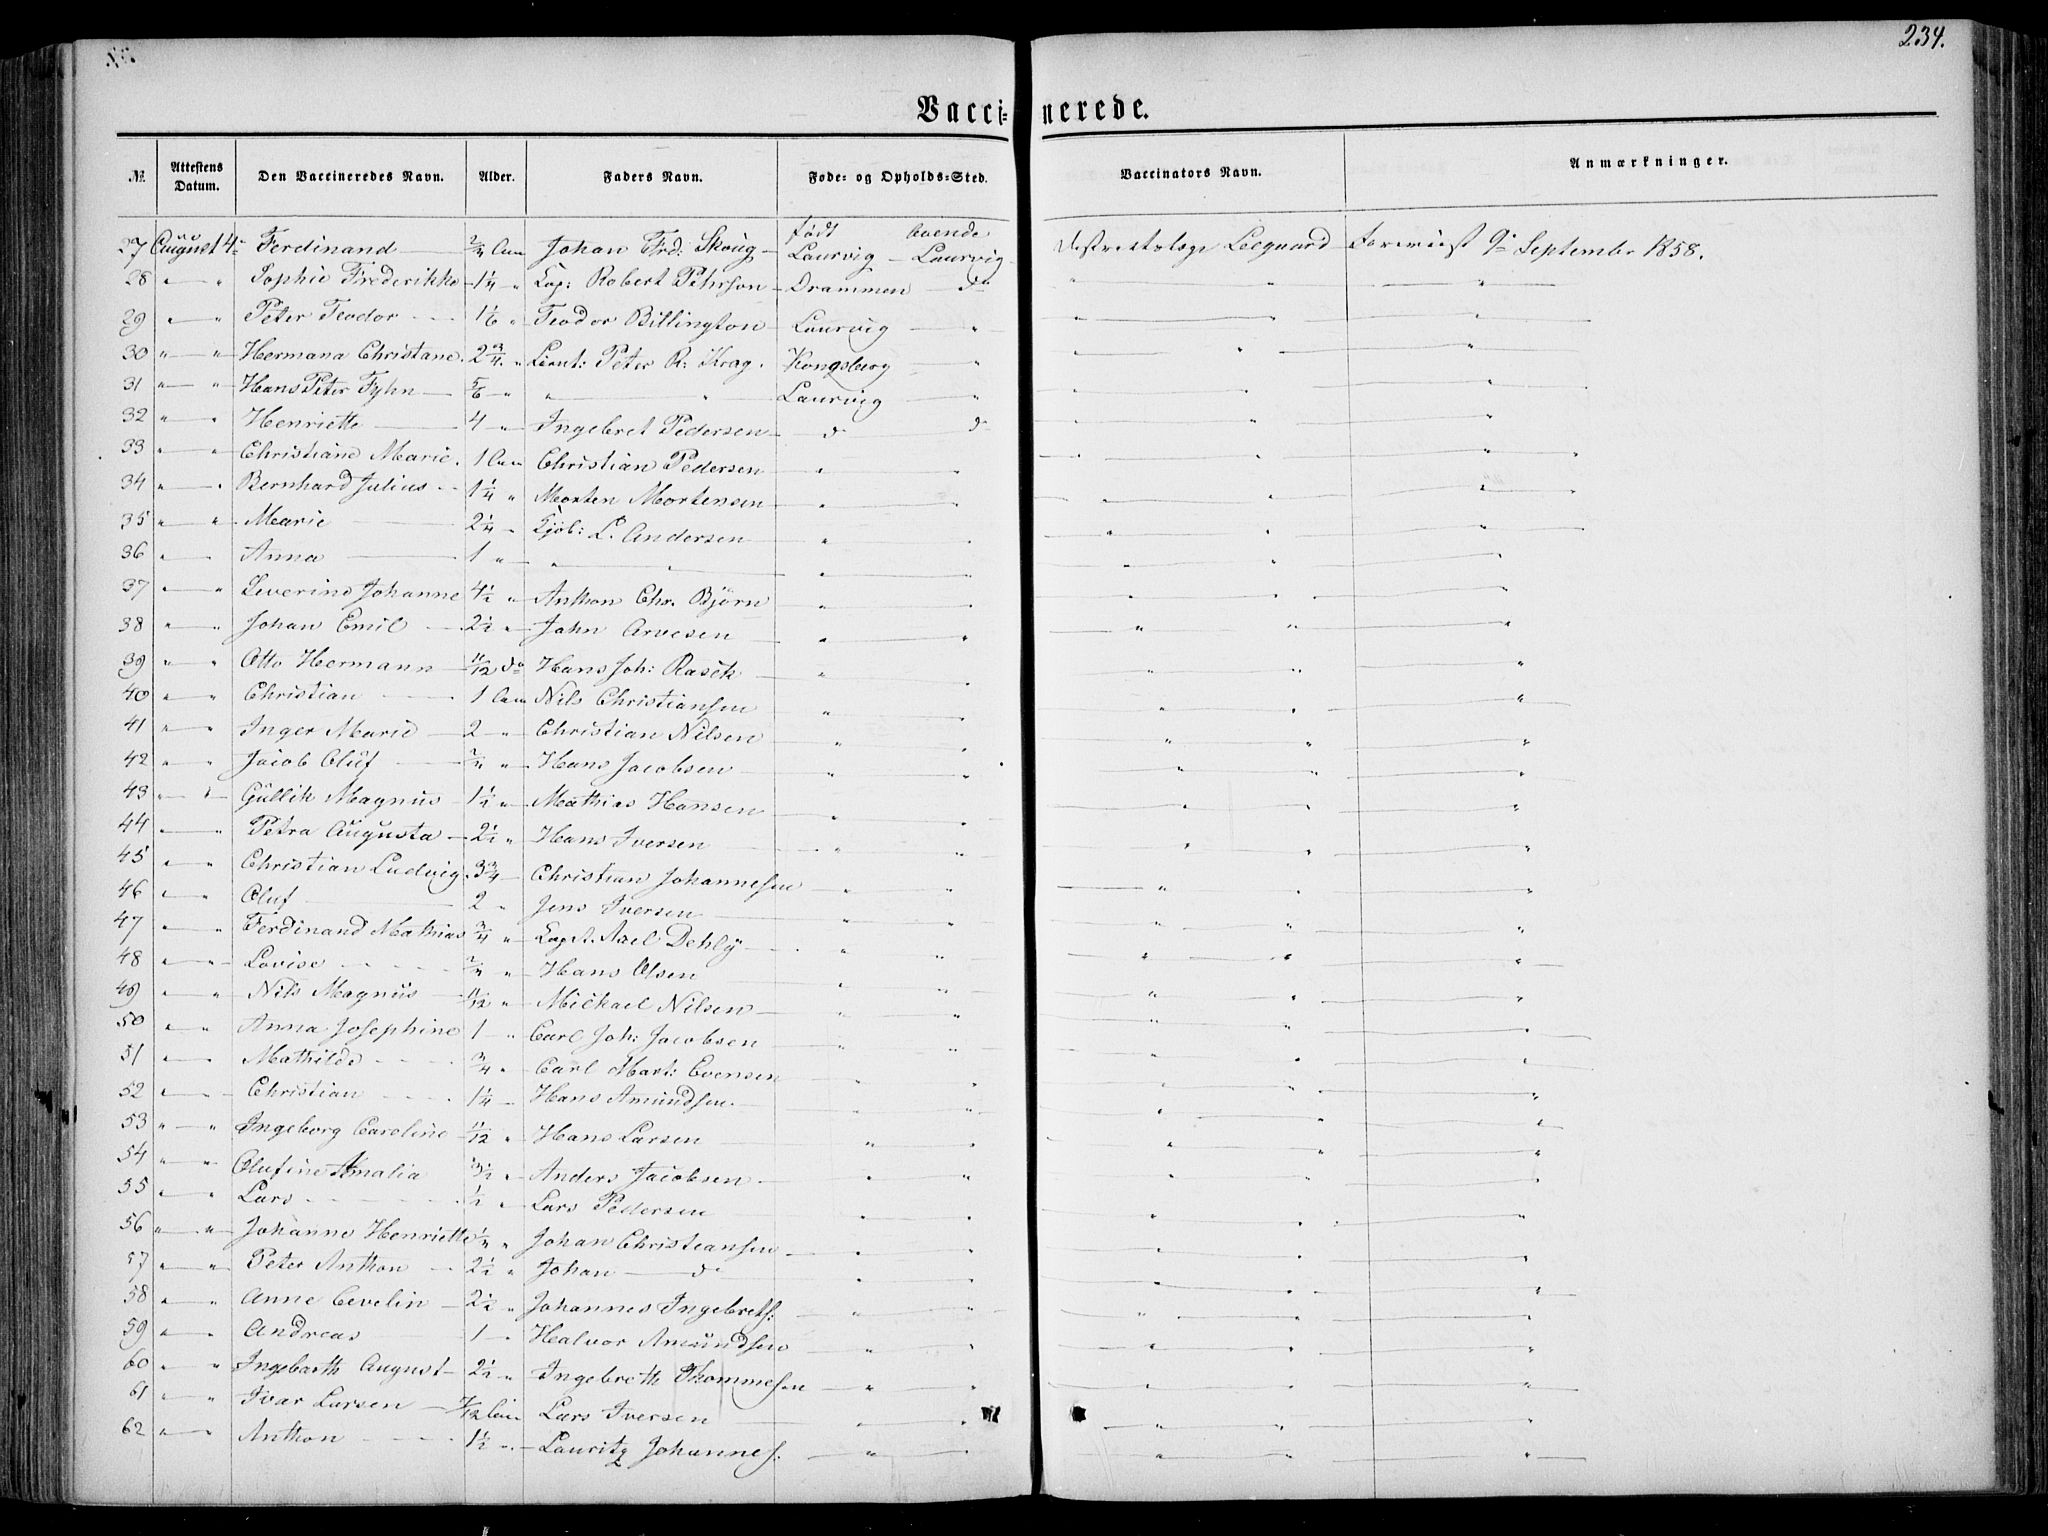 234.
Vaccinerede.
№ Attestens Datum. Den Vaccineredes Navn. Alder. Faders Navn. Føde- og Opholds-Sted. Vaccinators Navn. Anmærkninger.
født boende
27 August 4 Ferdinand Johan Frd: Skoug Laurvig Laurvig September 1858.
28 " " Sophie Frederikke 1¼ " Cap: Robert Pehrson Drammen do
29 " " Peter Teodor 1⅙ " Teodor Billington Laurvig "
30 " " Hermana Christane 2¾ " Lieut: Peter R: Krag. Kongsberg "
31 " " Hans Peter Fyhn 5/6 " " " Laurvig "
32 " " Henriette 4 " Ingebret Pedersen do do
33 " " Christiane Marie. 1 Christian Pedersen " "
34 " " Bernhard Julius 1¼ " Morten Mortensen " "
35 " " Marie 2¼ Kjøb: L. Andersen " "
36 " Anna 1 " " " " "
37 " " Severine Johanne 4½ " Anthon Chr. Bjørn " "
38 " " Johan Emil 2½ " John Arvesen " "
39 " " Otto Hermann 11/12 do Hans Joh: Rasch " "
40 " " Christian 1 Nils Christiansen " "
41 " " Inger Marie 2 " Christian Nilsen " "
42 " " Jacob Oluf " Hans Jacobsen " "
43 " " Gullik Magnus 1½ " Mathias Hansen " "
44 " " Petra Augusta 2½ " Hans Iversen " "
45 " " Christian Ludvig. 3¾ Christian Johannesen " "
46 " " Oluf 2 " Jens Iversen " "
47 " " Ferdinand Mathias ¾ " Capt. Axel Dehly " "
48 " " Lovise " Hans Olsen " "
49 " " Nils Magnus 11/12 " Michael Nilsen " "
50 " " Anna Josephine 1 " Carl Joh: Jacobsen " "
51 " Mathilde ¾ " Carl Mart: Evensen " "
52 " Christian 1¼ Hans Amundsen. " "
53 " " Ingeborg Caroline 11/12 " Hans Larsen " "
54 " " Olufine Amalia 3½ " Anders Jacobsen " "
55 " " Lars ½ " Lars Pedersen " "
56 " " Johanne Henriette " Johan Christiansen " "
57 " " Peter Anthon 2½ " Johan do " "
58 " " Anne Evelin 2½ " Johannes Ingebrets: " "
59 " " Andreas 1 " Halvor Amundsen " "
60 " " Ingebarth August 2½ " Ingebreth Thommesen " "
61 " " Ivar Larsen 7/12 Lars Iversen " "
62 " " Anthon 1½ " Lauritz Johannes: " "